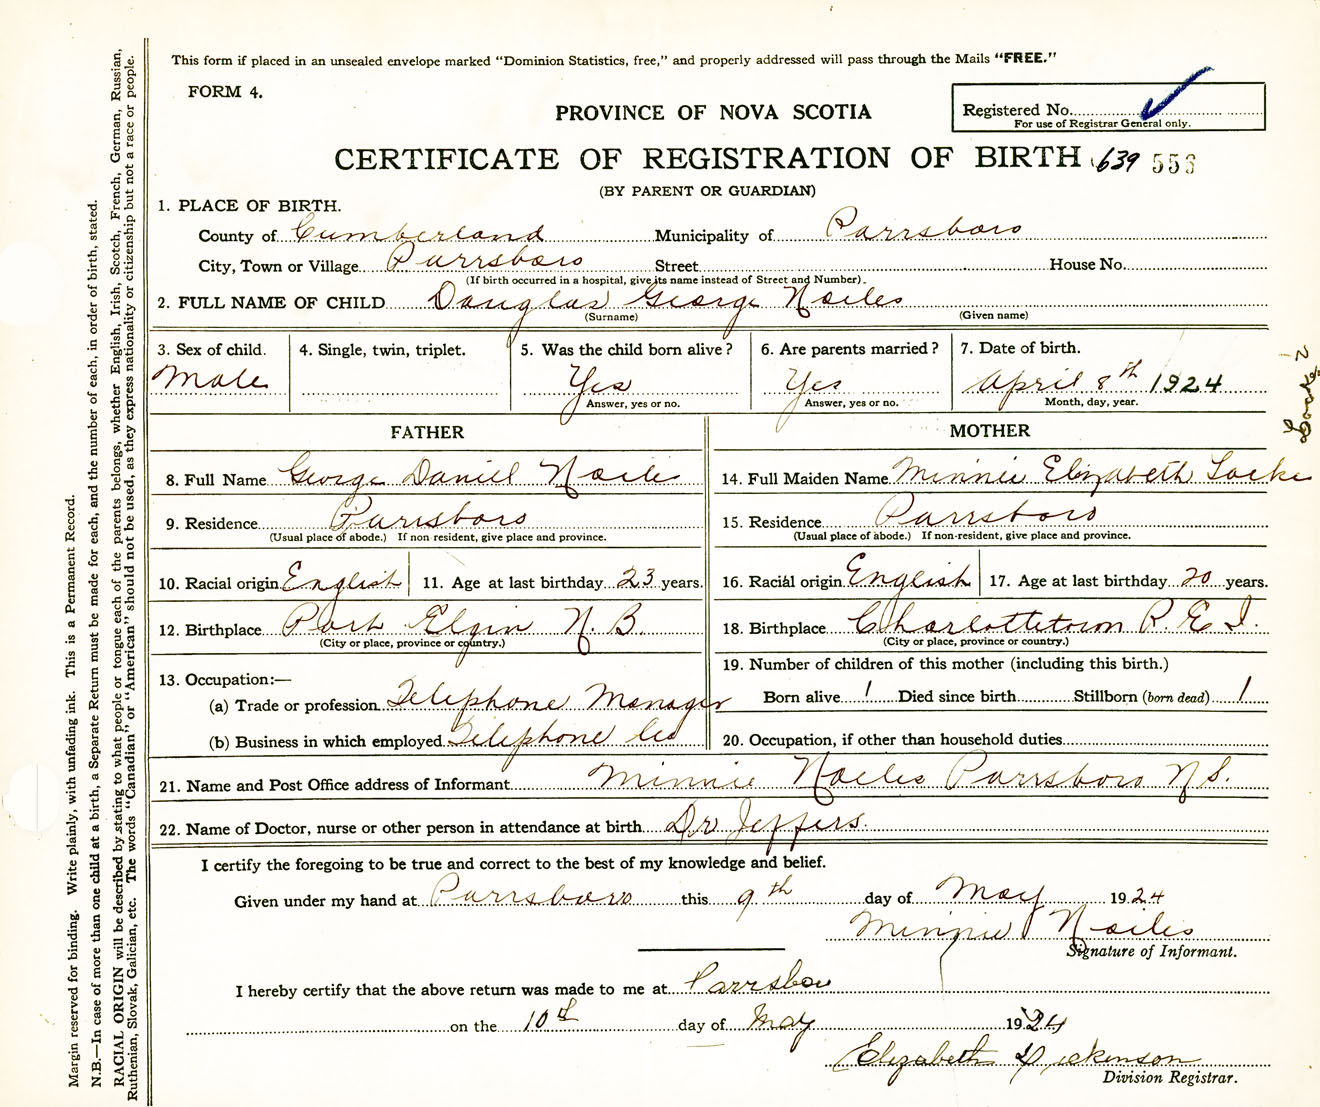 This form if placed in an unsealed envelope marked "Dominion Statistics, free," and properly addressed will pass through the Mails "FREE."
FORM 4.
PROVINCE OF NOVA SCOTIA
Registered No.
For use of Registrar General only.
CERTIFICATE OF REGISTRATION OF BIRTH 639 556
(BY PARENT OR GUARDIAN)
1. PLACE OF BIRTH.
County of Cumberland Municipality of Parrsboro
City, Town or Village Parrsboro Street House No.
(If birth occurred in a hospital, give its name instead of Street and Number).
2. FULL NAME OF CHILD Douglas George Noiles
(Surname) (Given name)
3. Sex of child. 4. Single, twin, triplet. 5. Was the child born alive? 6. Are parents married? 7. Date of birth.
Male Yes Yes April 8th 1924
Answer, yes or no. Answer, yes or no. Month, day, year.
FATHER MOTHER
8. Full Name George Daniel Noiles 14. Full Maiden Name Minnie Elizabeth Locke
9. Residence Parrsboro 15. Residence Parrsboro
(Usual place of abode.) If non resident, give place and province. (Usual place of abode.) If non-resident, give place and province.
10. Racial origin English 11. Age at last birthday 23 years. 16. Racial origin English 17. Age at last birthday 20 years.
12. Birthplace Port Elgin N. B. 18. Birthplace Charlottetown P. E I.
(City or place, province or country.) (City or place, province or country.)
13. Occupation:— 19. Number of children of this mother (including this birth.)
(a) Trade or profession Telephone Manager Born alive 1 Died since birth Stillborn (born dead) 1
(b) Business in which employed Telephone Co 20. Occupation, if other than household duties
21. Name and Post Office address of Informant Minnie Noiles Parrsboro N S.
22. Name of Doctor, nurse or other person in attendance at birth Dr Jeffers.
I certify the foregoing to be true and correct to the best of my knowledge and belief.
Given under my hand at Parrsboro this 9th day of May 1924
Minnie Noiles
Signature of Informant.
I hereby certify that the above return was made to me at Parrsboro
on the 10th day of May 1924
Elizabeth Dickenson
Division Registrar.
Margin reserved for binding. Write plainly, with unfading ink. This is a Permanent Record.
N.B.—In case of more than one child at a birth, a Separate Return must be made for each, and the number of each, in order of birth, stated.
RACIAL ORIGIN will be described by stating to what people or tongue each of the parents belongs, whether English, Irish, Scotch, French, German, Russian,
Ruthenian, Slovak, Galician, etc. The words "Canadian" or "American" should not be used, as they express nationality or citizenship but not a race or people.